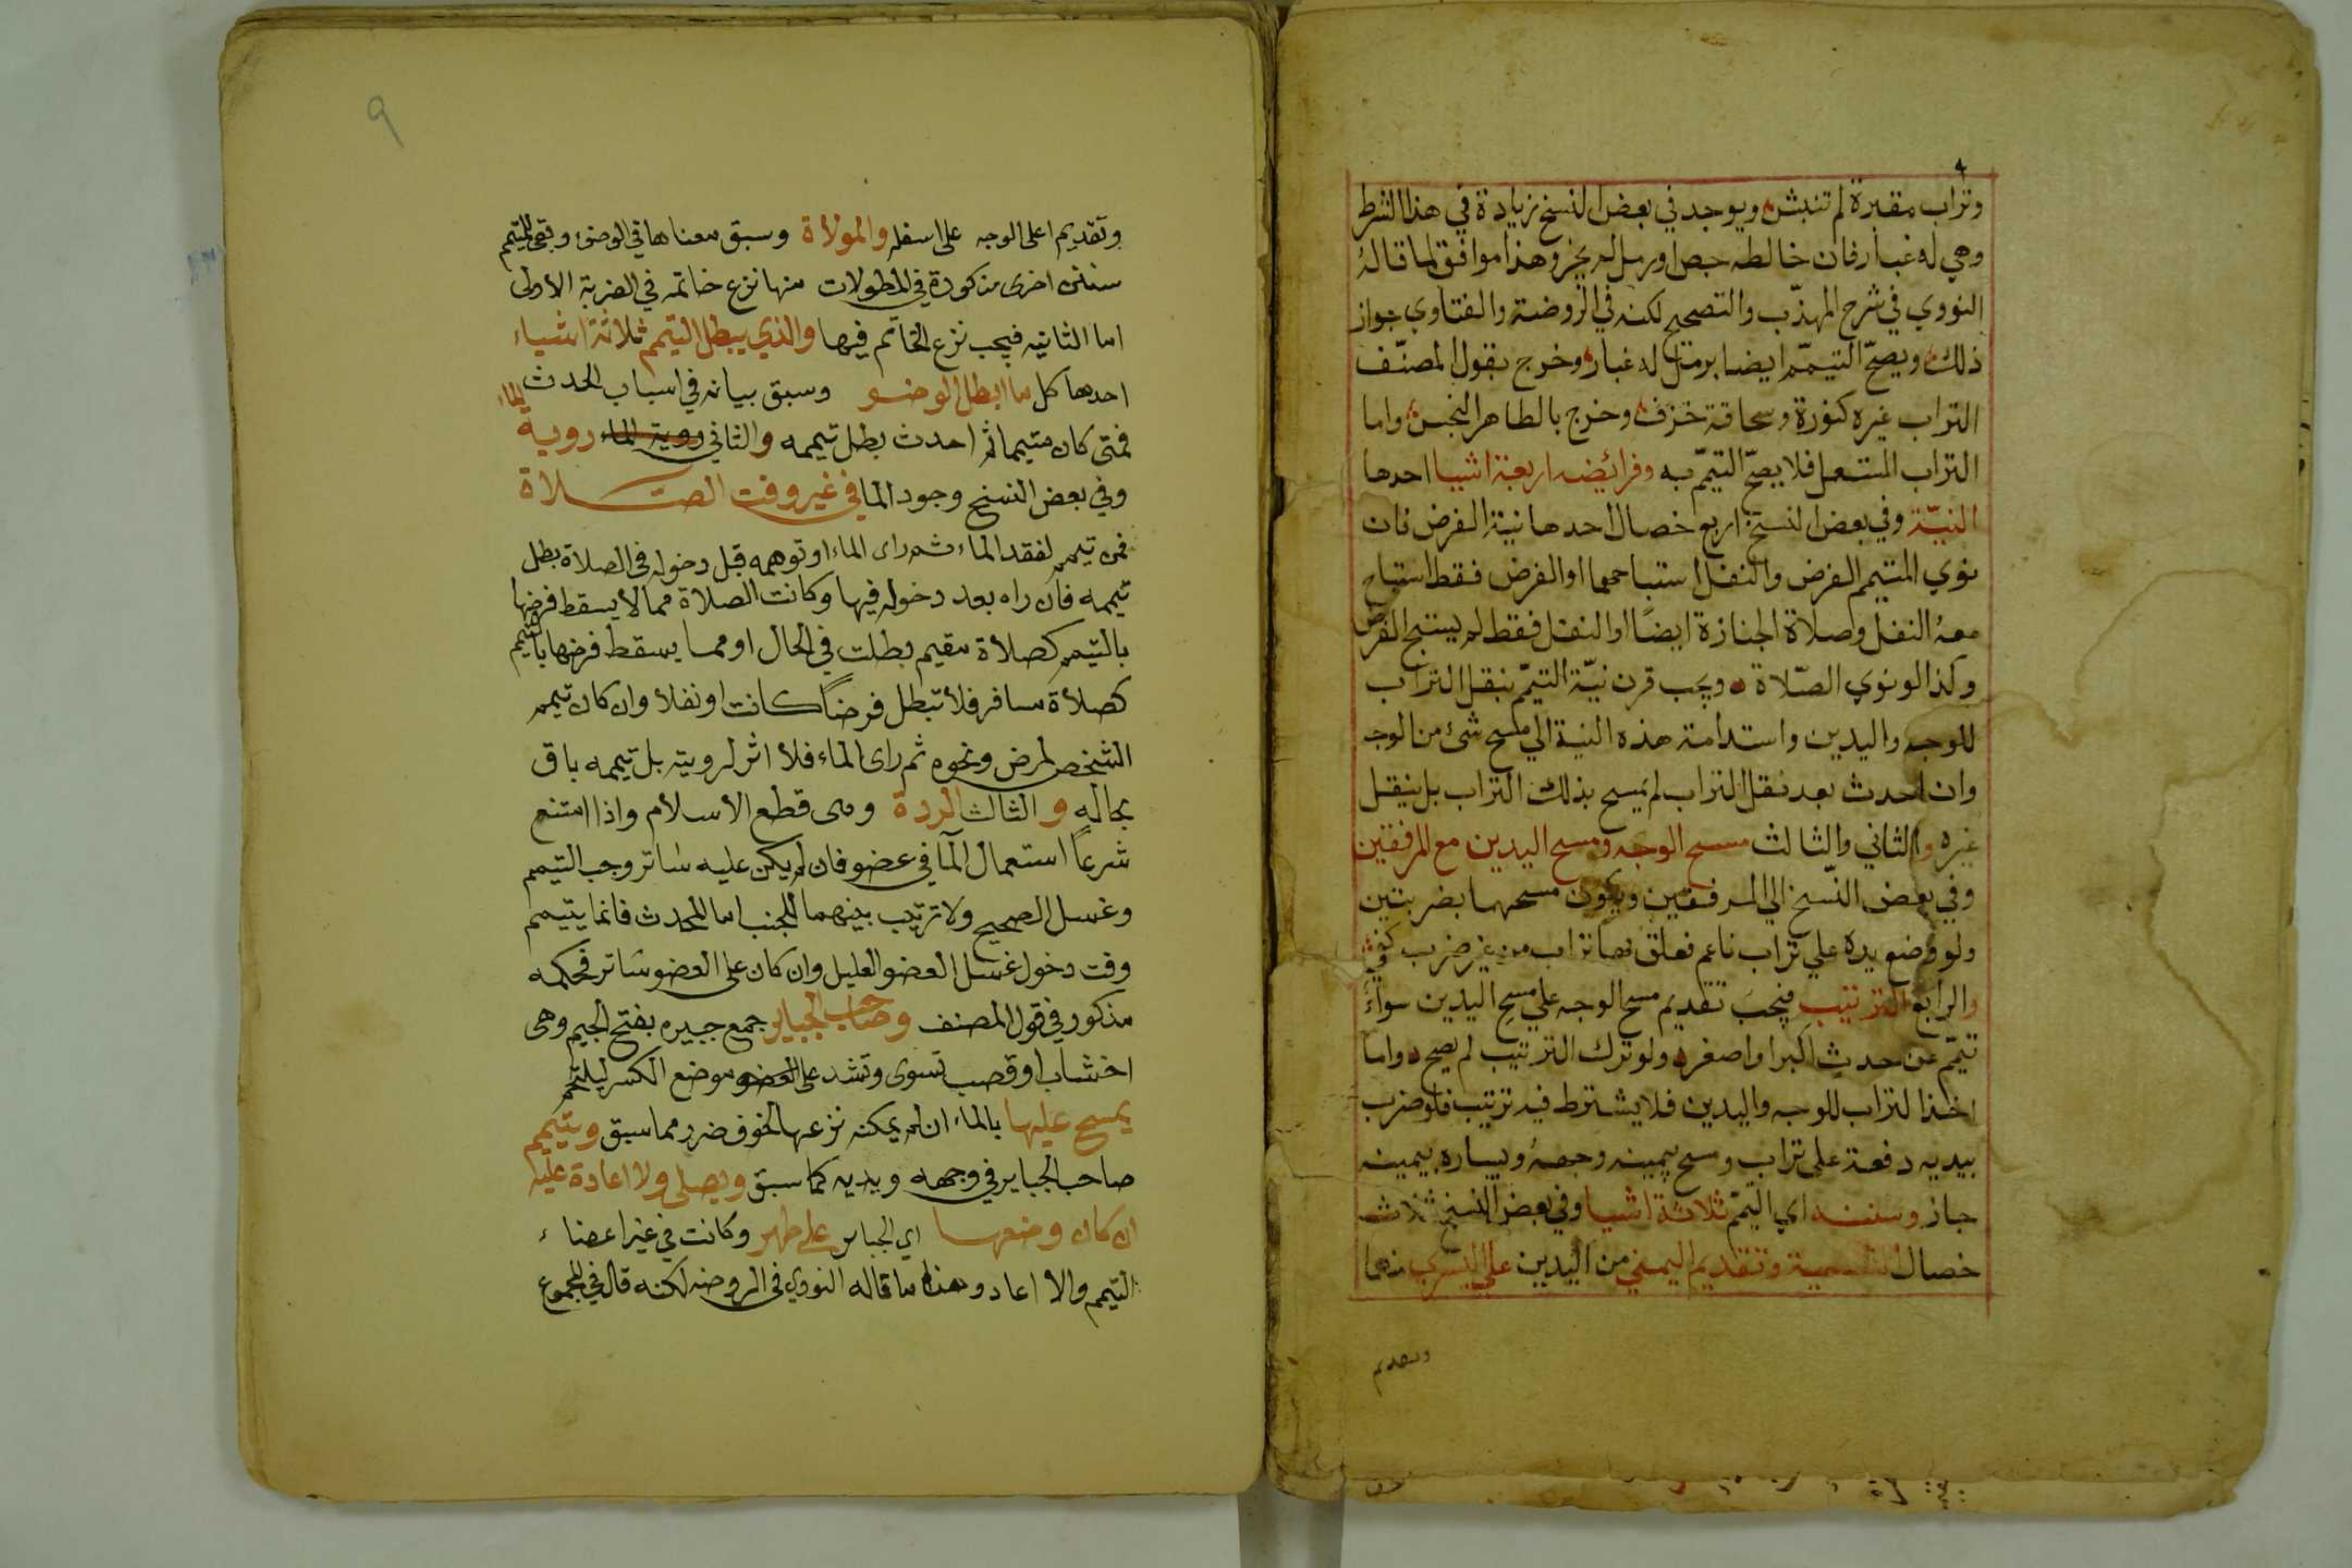 وتراب مقبرة لم تنبش ويوجد في بعض النسخ زيادة في هذا الشرط
وهي له غبار فان خالطه جص او رمل لم يجز وهذا موافق لما قاله
النووي في شرح المهذّب والتصحيح لكنه في الروضة والفتاوي جواز
ذلك ويصحّ التيمّم ايضا برمل له غبار وخرج بقول المصنّف
التراب غيره كنورة وسحاقة خزف وخرج بالطاهر النجس واما
التراب المستعمل فلا يصحّ التيمّم به وفرائضه اربعة اشيا احدها
النيّة وفي بعض النسخ اربع خصال احدها نية الفرض فان
نوي المتيمم الفرض والنفل استباحهما او الفرض فقط استباح
معهُ النفل وصلاة الجنازة ايضًا او النفل فقط لم يستبح الفرض
وكذا لو نوي الصّلاة ويجب قرن نيّة التيمّم بنقل التراب
للوجه واليدين واستدامة هذه النية الي مسح شئ من الوجه
وان احدث بعد نقل التراب لم يمسح بذلك التراب بل ينقل
غيره والثاني والثالث مسح الوجه ومسح اليدين مع المرفقين
وفي بعض النّسخ الي المرفقين ويكون مسحهما بضربتين
ولو وضع يده علي تراب ناعم فعلق بها تراب من غير ضرب كفي
والرابع الترتيب فيجبَ تقديم مسح الوجه علي مسح اليدين سواءً
تيمّم عن حدثٍ اكبر او اصغر ولو ترك الترتيب لم يصح واما
اخذ التراب للوجه واليدين فلا يشترط فيه ترتيب فلو ضرب
بيديه دفعة علي تراب ومسح بيمينه وجههُ وبيساره يمينه
جاز وسننه اي التيمّم ثلاثة اشيا وفي بعض النسخ ثلاث
خصال التسمية وتقديم اليمني من اليدين علي اليسري منهما
وتقديم
٩
وتقديم اعلى الوجه على اسفله والمولاة وسبق معناها في الوضوء وبقي للتيمم
سنن اخرى مذكورة في المطولات منها نزع خاتمه في الضربة الاولى
اما الثانيه فيجب نزع الخاتم فيها والذي يبطل التيمم ثلاثة اشياء
احدها كل ما ابطل الوضو وسبق بيانه في اسباب الحدث
فمتى كان متيمما ثم احدث بطل تيممه والثاني روية الماء روية الماء
وفي بعض النسخ وجود الما في غير وقت الصلاة
فمن تيمم لفقد الماء ثم راى الماء او توهمه قبل دخوله في الصلاة بطل
تيممه فان راه بعد دخوله فيها وكانت الصلاة مما لا يسقط فرضها
بالتيمم كصلاة مقيم بطلت في الحال او مما يسقط فرضها بالتيمم
كصلاة مسافر فلا تبطل فرضاً كانت او نفلا وان كان تيمم
الشخص لمرض ونحوه ثم راى الماء فلا اثر لرويته بل تيممه باق
بحاله و الثالث الردة وهى قطع الاسلام واذا امتنع
شرعاً استعمال الما في عضو فان لم يكن عليه ساتر وجب التيمم
وغسل الصحيح ولا ترتيب بينهما للجنب اما المحدث فانما يتيمم
وقت دخول غسل العضو العليل وان كان على العضو ساتر فحكمه
مذكور في قول المصنف وصاحب الجباير جمع جبيره بفتح الجيم وهى
اخشاب او قصب تسوى وتشد على العضو موضع الكسر ليلتحم
يمسح عليها بالماء ان لم يمكنه نزعها لخوف ضرر مما سبق ويتيمم
صاحب الجباير في وجهه ويديه كما سبق ويصلى ولا اعادة عليه
ان كان وضعها اي الجباير على طهر وكانت في غير اعضاء
التيمم والا اعاد وهذا ما قاله النووي في الروضه لكنه قال في المجموع